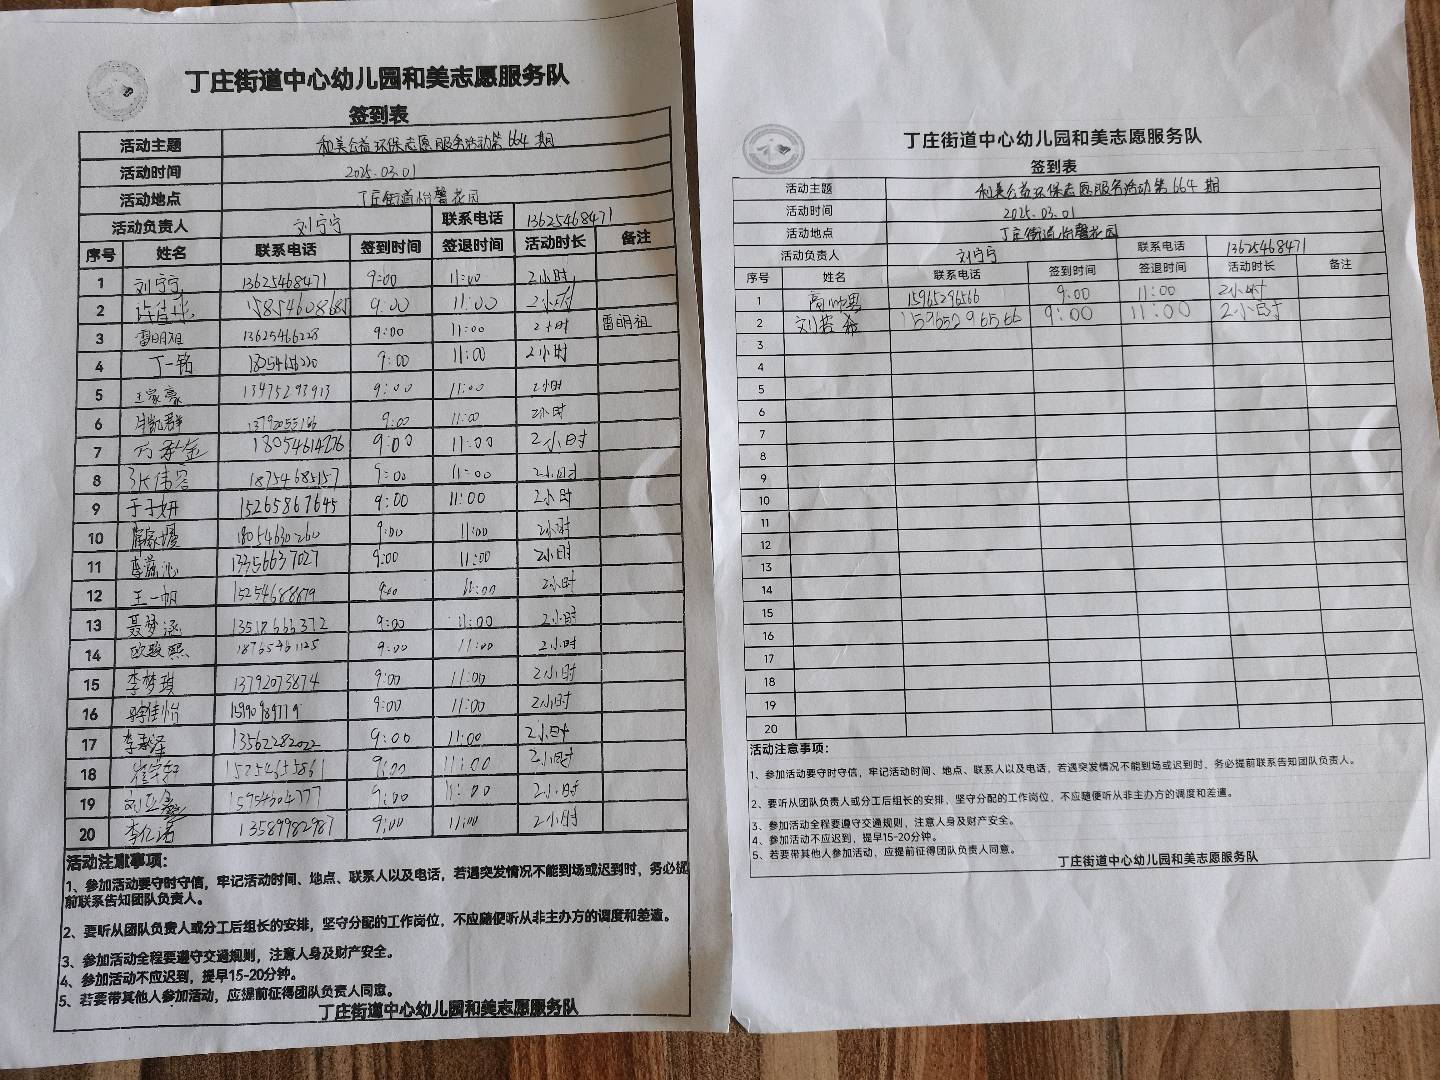 丁庄街道中心幼儿园和美志愿服务队
签到表
活动主题 和美公益环保志愿服务活动第664期
活动时间 2025.03.01
活动地点 丁庄街道怡馨花园
活动负责人 刘宁宁 联系电话 13625468471
序号 姓名 联系电话 签到时间 签退时间 活动时长 备注
1 刘宁宁 13625468471 9:00 11:00 2小时
2 15854608685 9:00 11:00 2小时
3 雷明祖 13625466228 9:00 11:00 2小时 雷明祖
4 丁一铭 9:00 11:00 2小时
5 王家豪 13475293913 9:00 11:00 2小时
6 牛凯群 13792055166 9:00 11:00 2小时
7 18054614276 9:00 11:00 2小时
8 张伟容 18754685157 9:00 11:00 2小时
9 于子妍 15265867645 9:00 11:00 2小时
10 18054630260 9:00 11:00 2小时
11 13356637027 9:00 11:00 2小时
12 王一帆 15254688879 9:00 11:00 2小时
13 聂梦涵 13518666372 9:00 11:00 2小时
14 欧骏熙 18765461125 9:00 11:00 2小时
15 李梦琪 13792073874 9:00 11:00 2小时
16 15990989779 9:00 11:00 2小时
17 李泰泽 13562282022 9:00 11:00 2小时
18 崔宇轩 15254655861 9:00 11:00 2小时
19 15954604777 9:00 11:00 2小时
20 李亿诺 13589982987 9:00 11:00 2小时
活动注意事项：
1、参加活动要守时守信，牢记活动时间、地点、联系人以及电话，若遇突发情况不能到场或迟到时，务必提
前联系告知团队负责人。
2、要听从团队负责人或分工后组长的安排，坚守分配的工作岗位，不应随便听从非主办方的调度和差遣。
3、参加活动全程要遵守交通规则，注意人身及财产安全。
4、参加活动不应迟到，提早15-20分钟。
5、若要带其他人参加活动，应提前征得团队负责人同意。
丁庄街道中心幼儿园和美志愿服务队
丁庄街道中心幼儿园和美志愿服务队
签到表
活动主题 和美公益环保志愿服务活动第664期
活动时间 2025.03.01
活动地点 丁庄街道怡馨花园
活动负责人 刘宁宁 联系电话 13625468471
序号 姓名 联系电话 签到时间 签退时间 活动时长 备注
1 高帅男 15965296566 9:00 11:00 2小时
2 刘若希 15965296566 9:00 11:00 2小时
3
4
5
6
7
8
9
10
11
12
13
14
15
16
17
18
19
20
活动注意事项：
1、参加活动要守时守信，牢记活动时间、地点、联系人以及电话，若遇突发情况不能到场或迟到时，务必提前联系告知团队负责人。
2、要听从团队负责人或分工后组长的安排，坚守分配的工作岗位，不应随便听从非主办方的调度和差遣。
3、参加活动全程要遵守交通规则，注意人身及财产安全。
4、参加活动不应迟到，提早15-20分钟。
5、若要带其他人参加活动，应提前征得团队负责人同意。
丁庄街道中心幼儿园和美志愿服务队